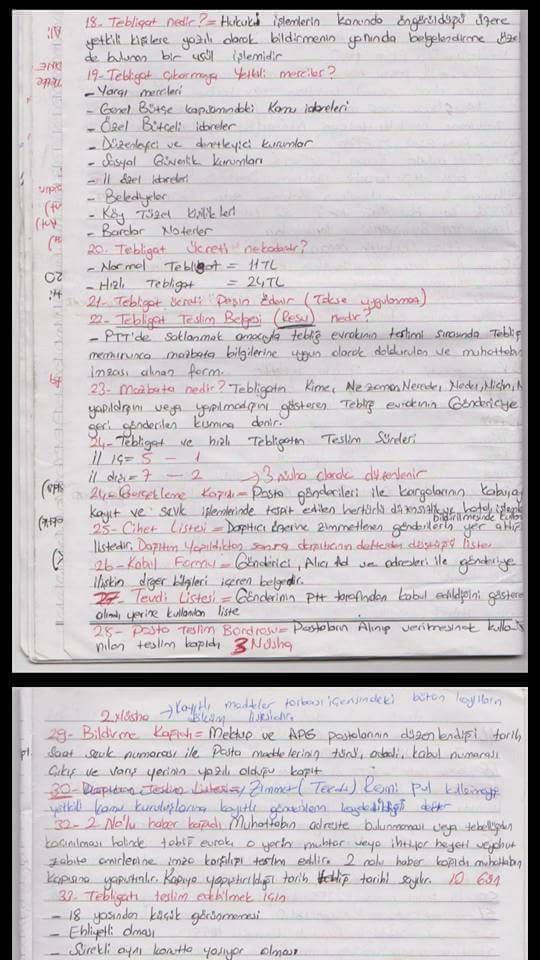 18- Tebligat nedir? = Hukuki işlemlerin kanunda öngörüldüğü üzere
yetkili kişilere yazılı olarak bildirmenin yanında belgelendirme özel
de bulunan bir usül işlemidir
19- Tebligat Çıkarmaya Yetkili merciler?
- Yargı mercileri
- Genel Bütçe kapsamındaki Kamu idareleri
- Özel Bütçeli idareler
- Düzenleyici ve denetleyici kurumlar
- Sosyal Güvenlik kurumları
- il özel idareleri
- Belediyeler
- Köy Tüzel kişilikleri
- Barolar Noterler
20. Tebligat Ücreti nekadardır?
- Normal Tebligat = 11TL
- Hızlı Tebligat = 24TL
21- Tebligat ücreti Peşin Ödenir (Takse uygulanmaz)
22- Tebligat Teslim Belgesi (Resu) nedir?
- PTT'de saklanmak amacıyla tebliğ evrakının teslimi sırasında Tebliğ
memurunca mazbata bilgilerine uygun olarak doldurulan ve muhatabın
imzası alınan form.
23- Mazbata nedir? Tebligatın Kime, Ne zaman, Nerede, Neden, Niçin, N
yapıldığını veya yapılmadığını gösteren Tebliğ evrakının Göndericiye
geri gönderilen kısmına denir.
24- Tebligat ve hızlı Tebligatın Teslim Süreleri
il içi = 5 - 1
il dışı = 7 - 2 → 3 nüsha olarak düzenlenir
24- Gerçekleme Kağıdı = Posta gönderileri ile kargolarının kabul,
kayıt ve sevk işlemlerinde tespit edilen hertürlü düzensizlik ve hatalı işlemle
bildirilmesinde kullanı
25- Cihet Listesi = Dağıtıcı üzerine zimmetlenen gönderilerin yer aldığı
listedir. Dağıtım Yapıldıktan sonra dağıtıcının defterden düştüğü liste
26- Kabul Formu = Gönderici, Alıcı Ad ve adresleri ile gönderiye
ilişkin diğer bilgileri içeren belgedir.
27- Tevdi Listesi = Gönderinin Ptt tarafından kabul edildiğini göstere
alındı yerine kullanılan liste
28- Posta Teslim Bordrosu = Postaların Alınıp verilmesinde kulla
nılan teslim kağıdı 3 Nüsha
2 nüsha → Kayıtlı maddeler torbası içerisindeki bütün kayıtların
29- Bildirme Kağıdı = Mektup ve APG postalarının düzenlendiği tarih,
saat sevk numarası ile Posta maddelerinin türü, adedi, kabul numarası
Çıkış ve varış yerinin yazılı olduğu kağıt
30- Dağıtım Teslim Listesi, Zimmet (Tevdi) Resmi pul kullanmaya
yetkili kamu kuruluşlarına kayıtlı gönderilerin kaydedildiği defter
32- 2 No'lu haber kağıdı Muhatabın adreste bulunmaması veya tebellüğden
kaçınılması halinde tebliğ evrakı o yerin muhtar veya ihtiyar heyeti veyahut
zabıta amirlerine imza karşılığı teslim edilir. 2 nolu haber kağıdı muhatabın
kapısına yapıştırılır. Kapıya yapıştırıldığı tarih tebliğ tarihi sayılır.
33. Tebligatı teslim edilmek için
- 18 yaşından küçük görünmemesi
- Ehliyetli olması
- Sürekli aynı konutta yaşıyor olması